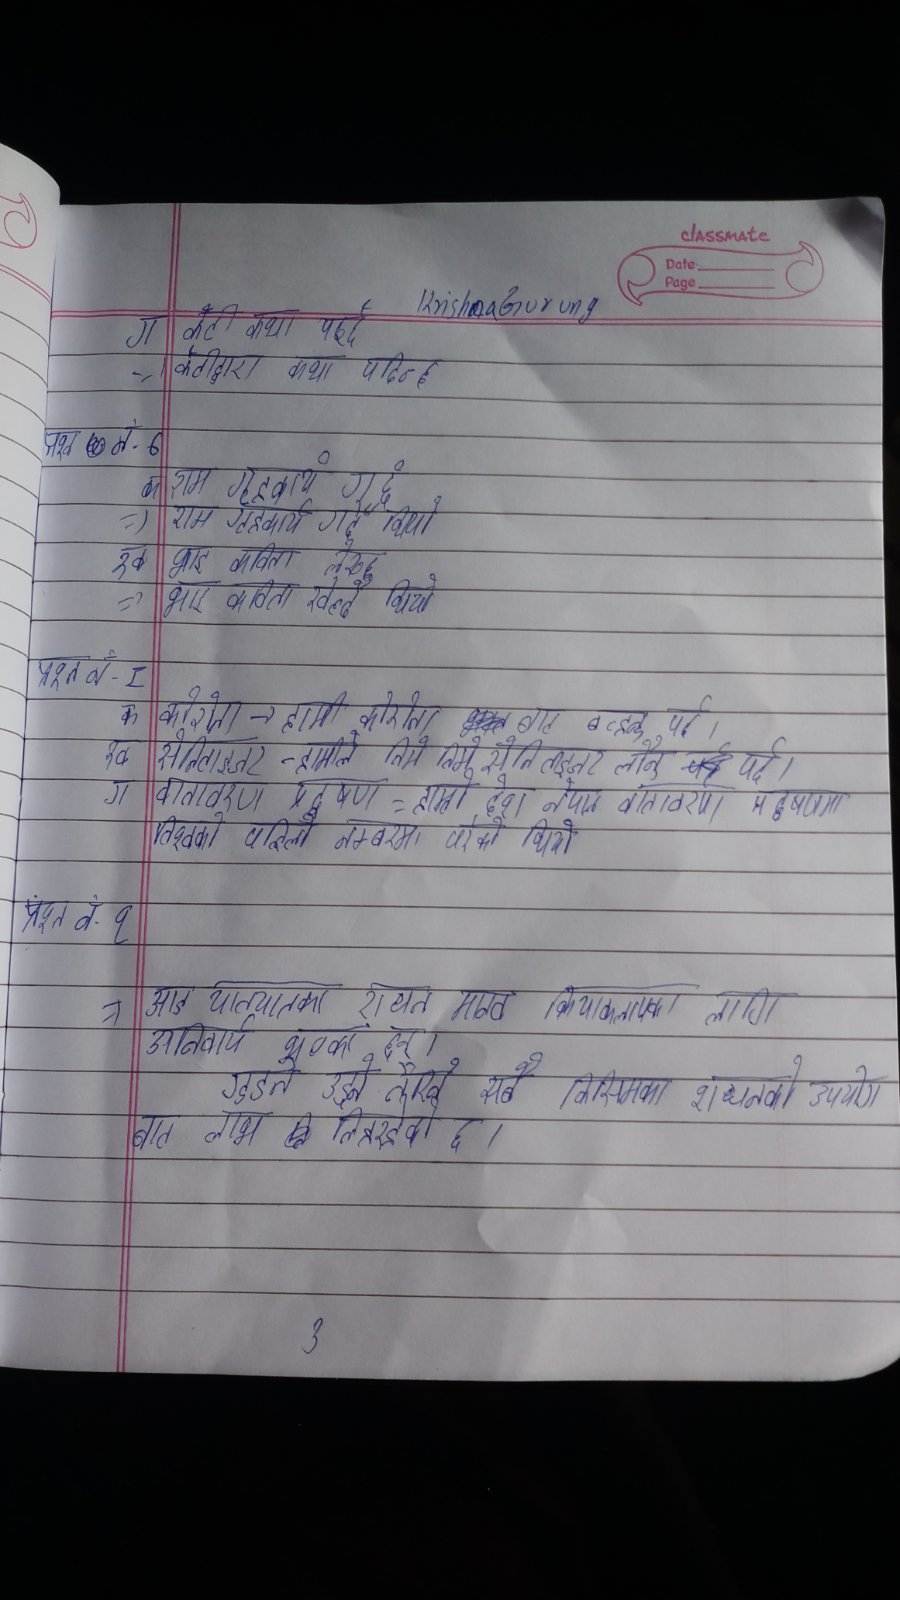 classmate
Date
Page
Krishna Gurung
ग केटी कथा पढ्छे
=> केटीद्वारा कथा पढिन्छ
प्रश्न नं - 6
क राम गृहकार्य गर्छ
=> राम गृहकार्य गर्दै थियो
ख भाइ कविता लेख्छ
=> भाइ कविता थियो
प्रश्न नं -
क कोरोना -> हामी कोरोना बाट बच्नु पर्छ।
ख सेनिटाइजर - हामीले सेनिटाइजर लाउनु पर्छ।
ग वातावरण प्रदुषण = हाम्रो देश नेपाल वातावरण प्रदुषणमा
विश्वको पहिलो नम्बरमा परेको थियो
प्रश्न नं - ९
=> आज यातयातका साधन मानव क्रियाकलापका लागि
अनिवार्य भएका छन्।
गुड्ने उड्ने तैरिने सबै किसिमका साधनको उपयोग
बाट लाभ लिइरहेको छ।
3